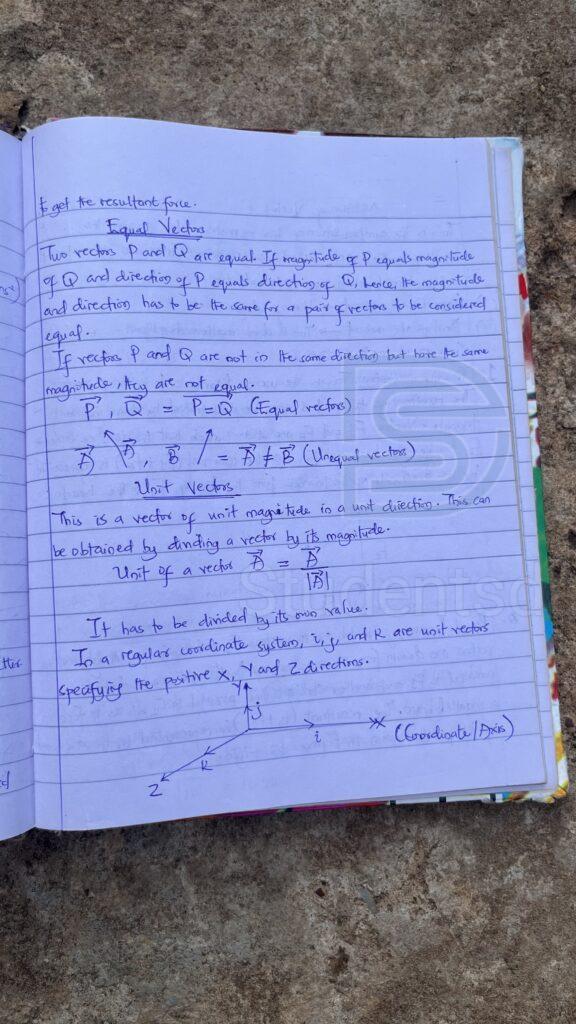 to get the resultant force.
Equal Vectors
Two vectors P and Q are equal. If magnitude of P equals magnitude
of Q and direction of P equals direction of Q, hence, the magnitude
and direction has to be the same for a pair of vectors to be considered
equal.
If vectors P and Q are not in the same direction but have the same
magnitude, they are not equal.
P⃗, Q⃗ = P=Q (Equal vectors)
A⃗ A⃗, B⃗ = A⃗ ≠ B⃗ (Unequal vectors)
Unit Vectors
This is a vector of unit magnitude in a unit direction. This can
be obtained by dividing a vector by its magnitude.
Unit of a vector A⃗ = A⃗
|A⃗|
It has to be divided by its own value.
In a regular coordinate system, i, j, and k are unit vectors
specifying the positive X, Y and Z directions.
Y
j
i X (Coordinate/Axis)
k
Z